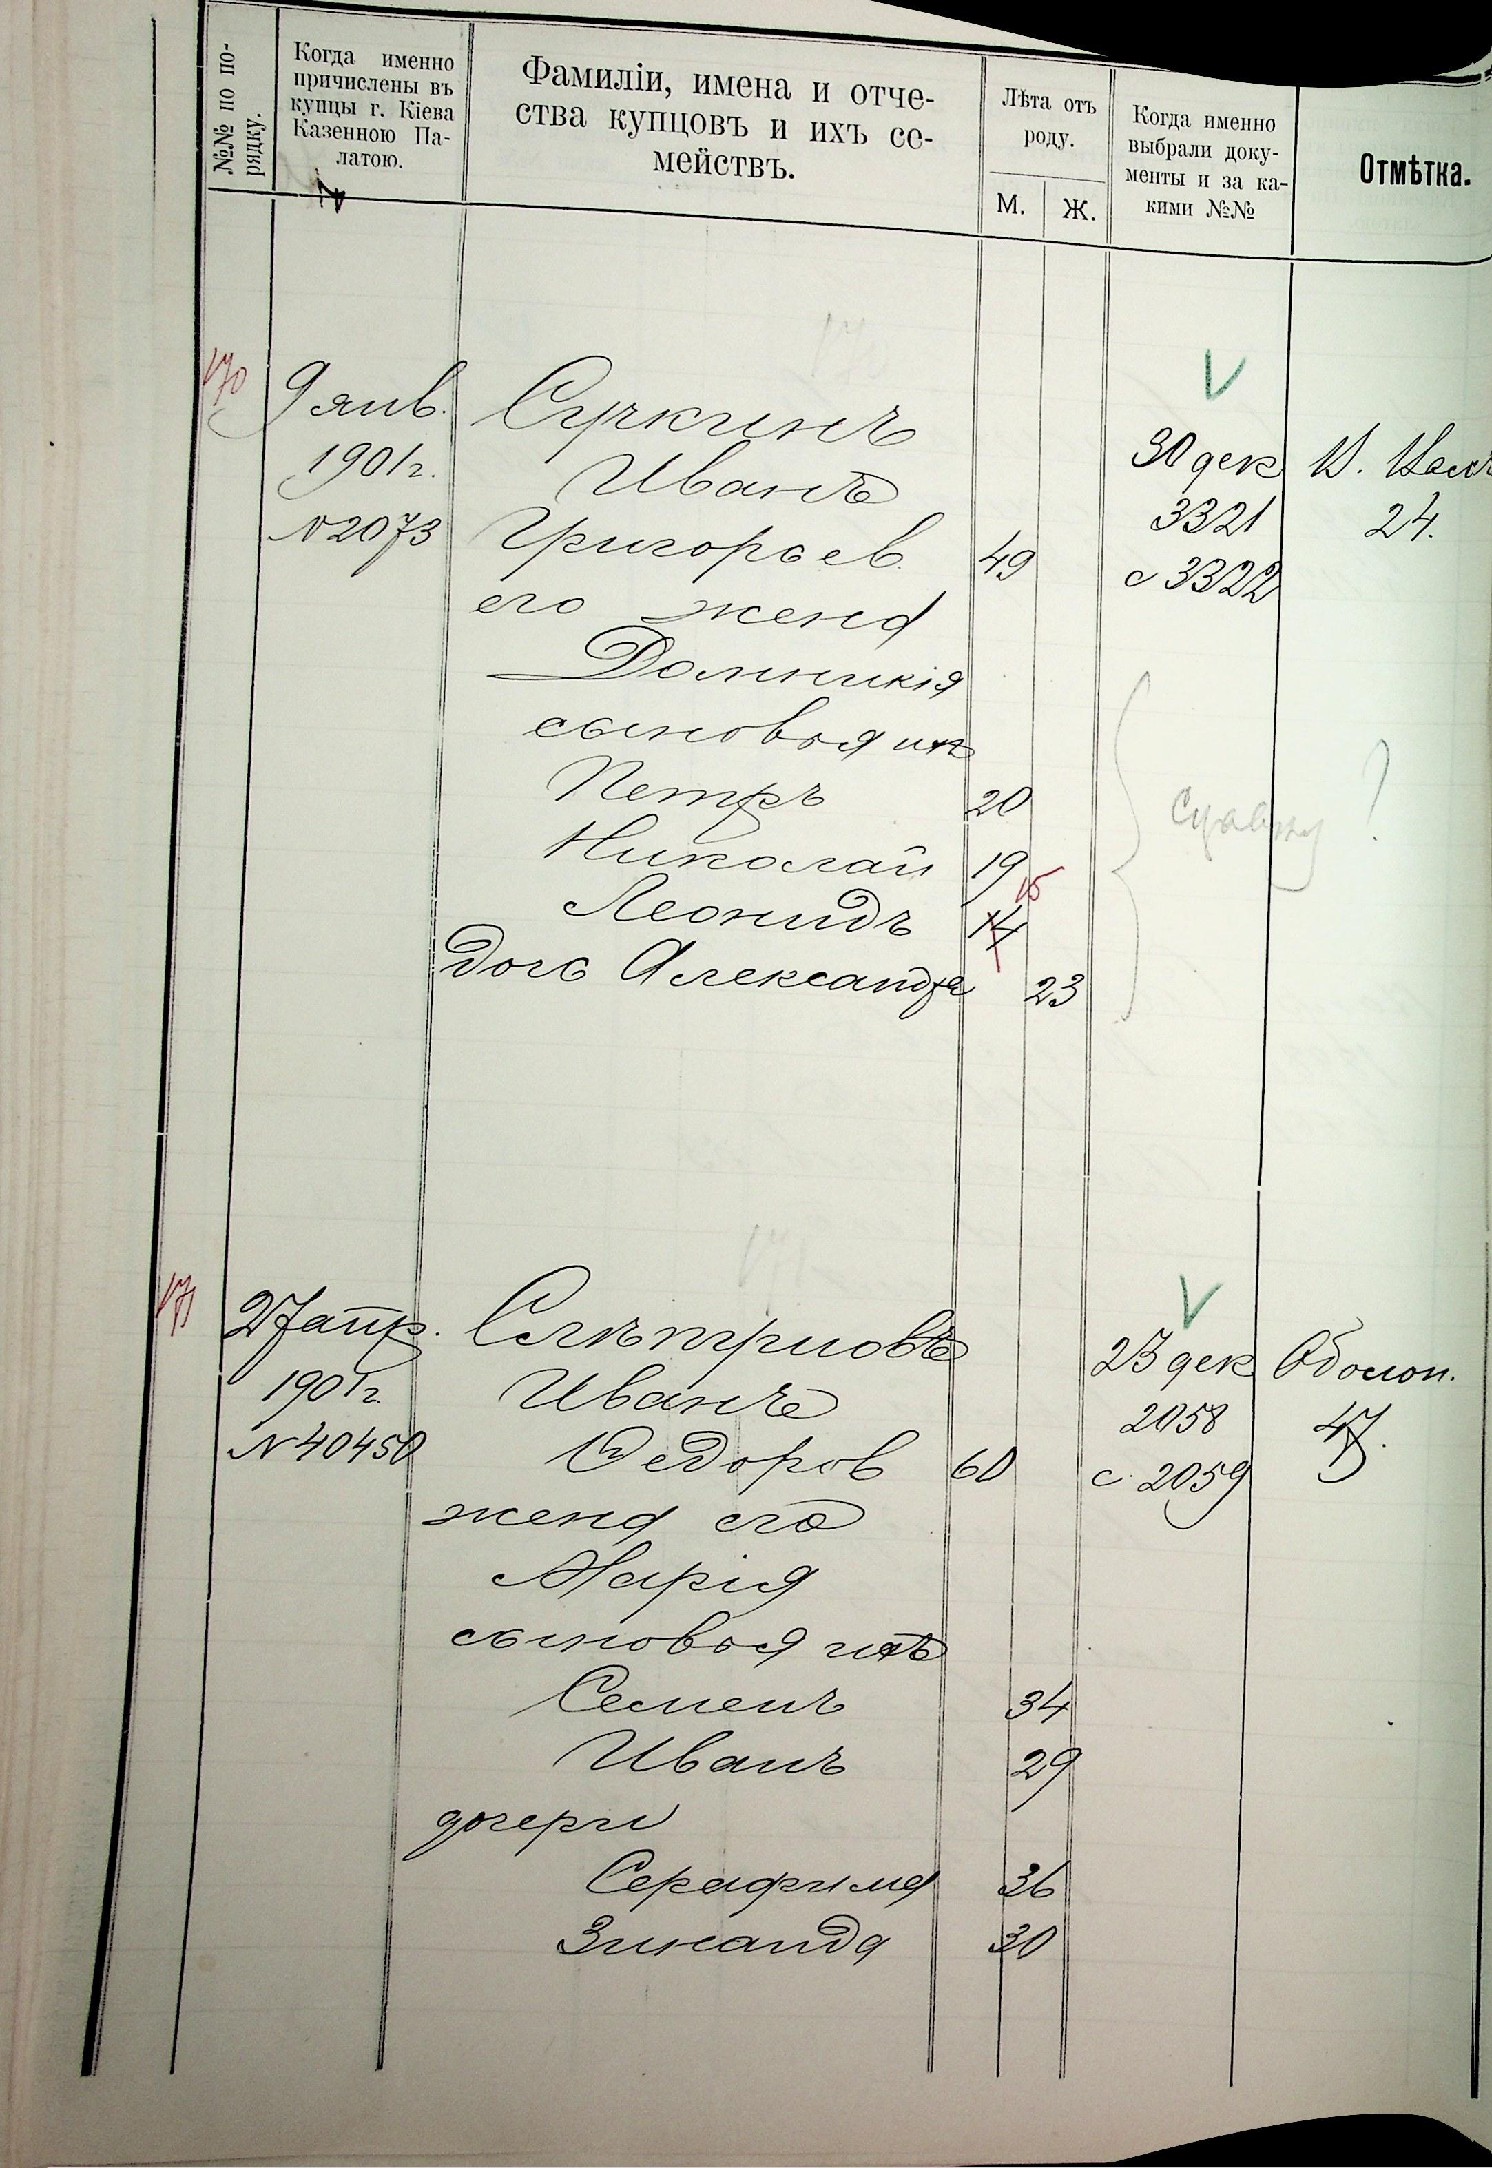 №№ по по-
рядку.
Когда именно
причислены въ
купцы г. Кіева
Казенною Па-
латою.
Фамиліи, имена и отче-
ства купцовъ и ихъ се-
мействъ.
Лѣта отъ
роду.
М. Ж.
Когда именно
выбрали доку-
менты и за ка-
кими №№
Отмѣтка.
170
9 янв.
1901 г.
№ 2073
Сучкинъ
Иванъ
Григорьев. 49
его жена
Домникія
сыновья ихъ
Петръ 20
Николай 19
Леонидъ 14 15
дочь Александра 23
30 дек
3321
с 3322
В. Вал
24.
Справку ?
171
27 апр.
1901 г.
№ 40450
Иванъ
Федоров 60
жена его
Марія
сыновья ихъ
Семенъ 34
Иванъ 29
дочери
Серафима 36
Зинаида 30
23 дек
2058
с 2059
Оболон.
47.